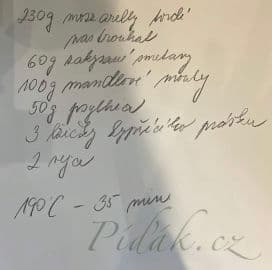 230g mozzarelly tvrdé
nastrouhat
60g zakysané smetany
100g mandlové mouky
50g psyllia
3 lžičky kypřícího prášku
2 vejce
190°C - 35 min
Pidák.cz